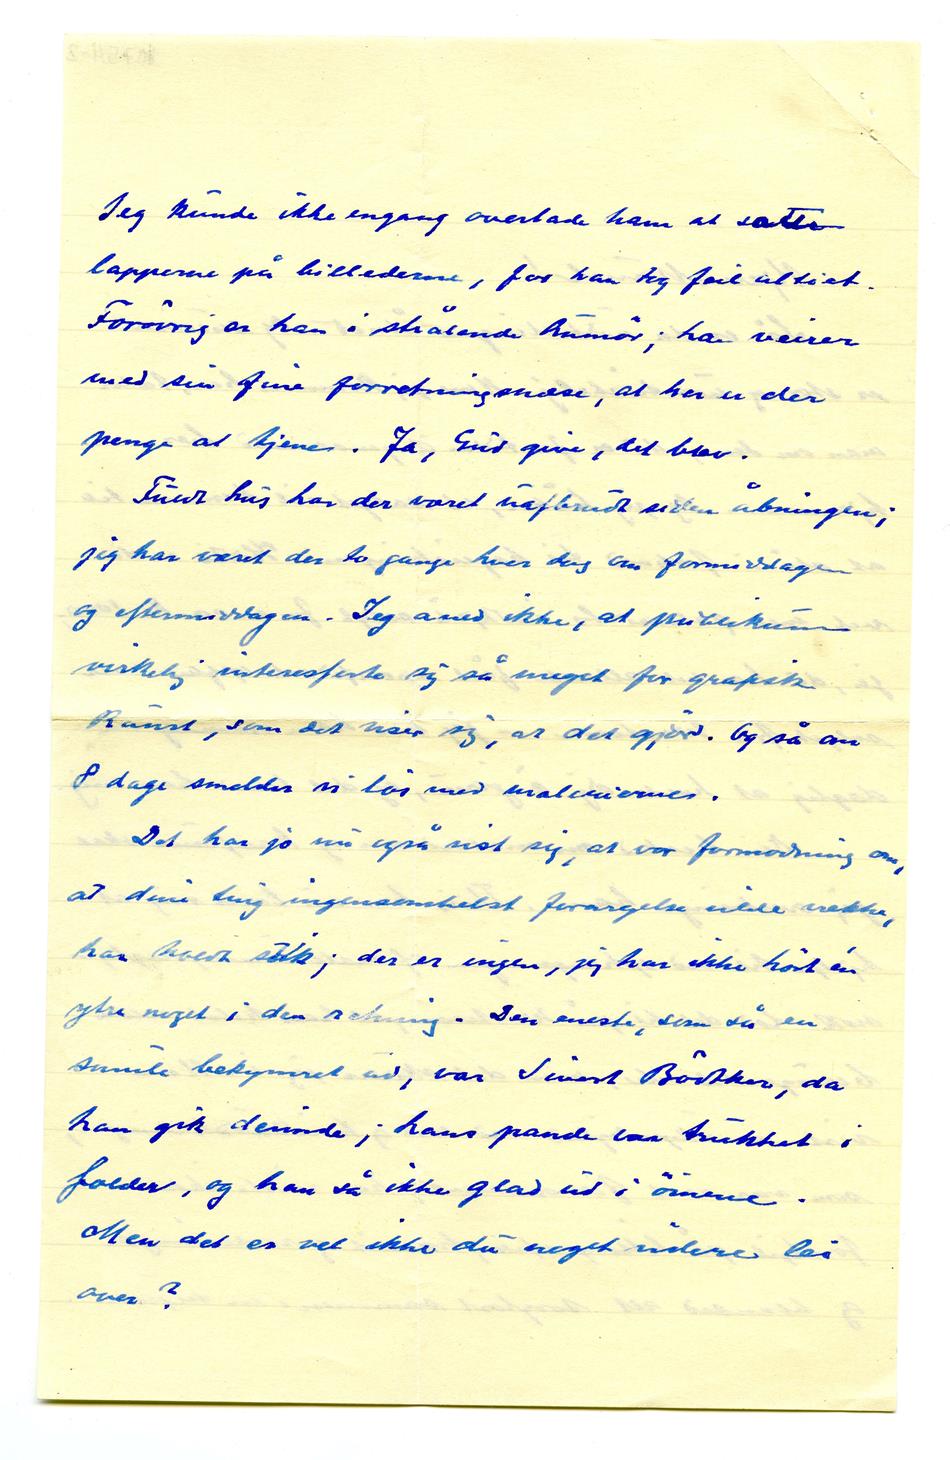 Jeg kunde ikke engang overlade ham at sætte
lapperne på billederne, for han tog feil altiet.
Forövrig er han i strålende humör; han veirer
med sin fine forretningsnæse, at her er der
penge at tjene. Ja, Gud give, det blev.
Fuldt hus har der været uafbrudt siden åbningen;
jeg har været der to gange hver dag om formiddagen
og eftermiddagen. Jeg aned ikke, at publikum
virkelig interesserte sig så meget for grafisk
kunst, som det viser sig, at det gjör. Og så om
8 dage smelder vi lös med malerierne.
Det har jo nu også vist sig, at vor formodning om,
at dine ting ingensomhelst forargelse vilde vække,
har holdt stik; der er ingen, jeg har ikke hört én
ytre noget i den retning. Den eneste, som så en
smule bekymret ud, var Sivert Bödtker, da
han gik derinde; hans pande var trukket i
folder, og han så ikke glad ud i öinene.
Men det er vel ikke du noget videre lei
over?
10754-2